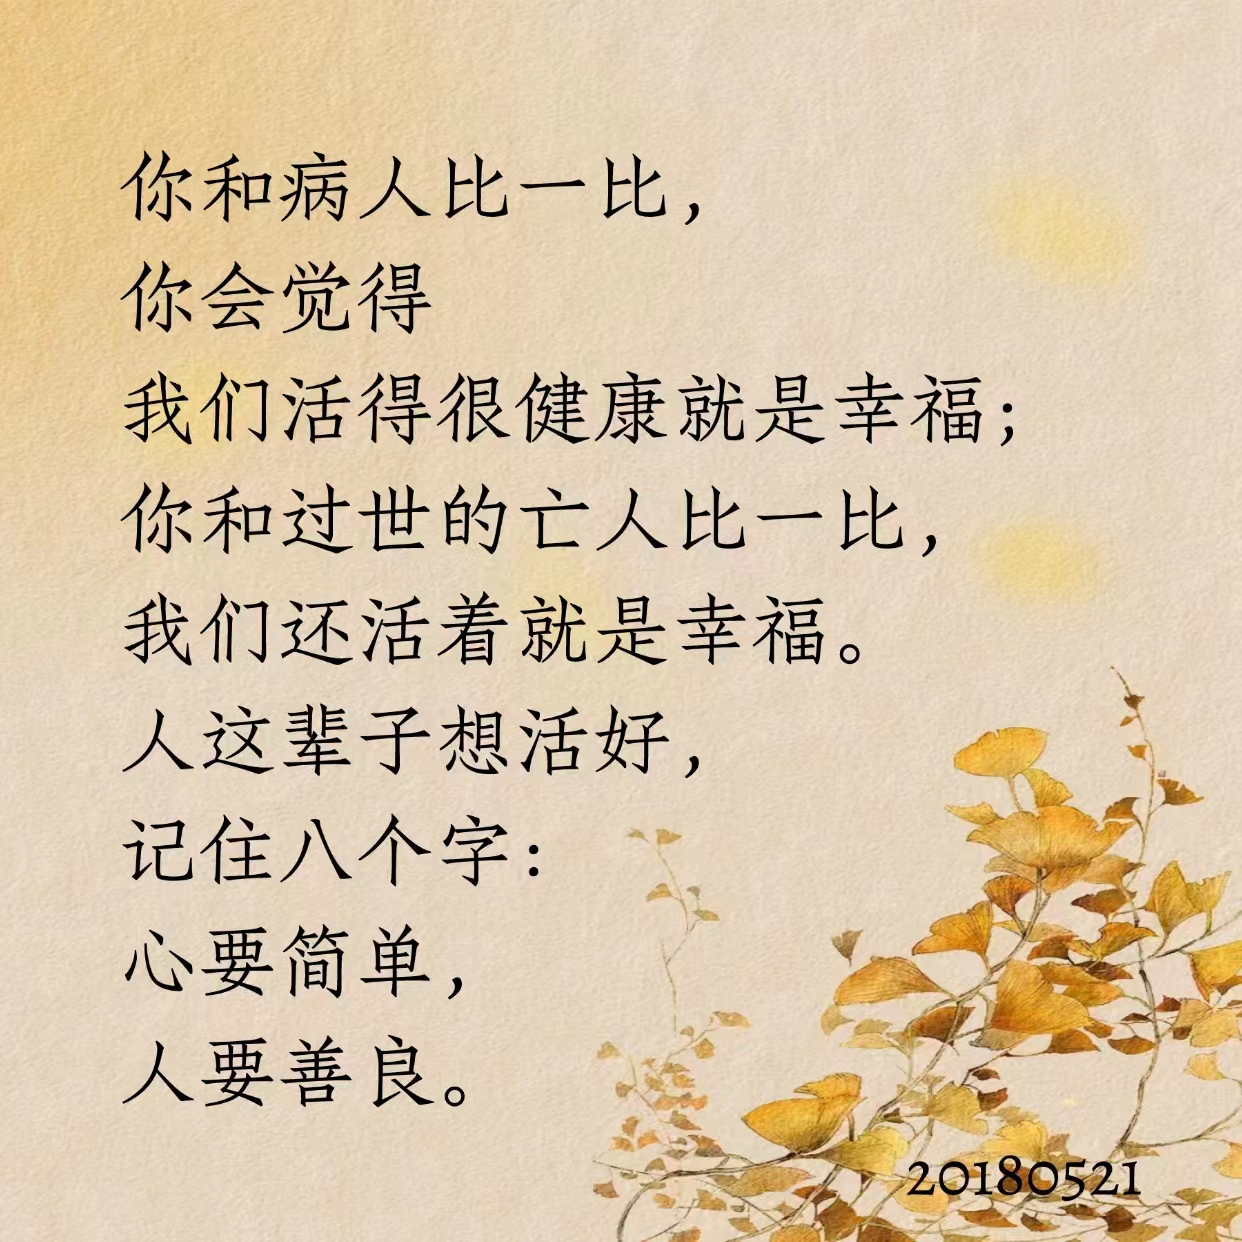 你和病人比一比，
你会觉得
我们活得很健康就是幸福；
你和过世的亡人比一比，
我们还活着就是幸福。
人这辈子想活好，
记住八个字：
心要简单，
人要善良。
20180521